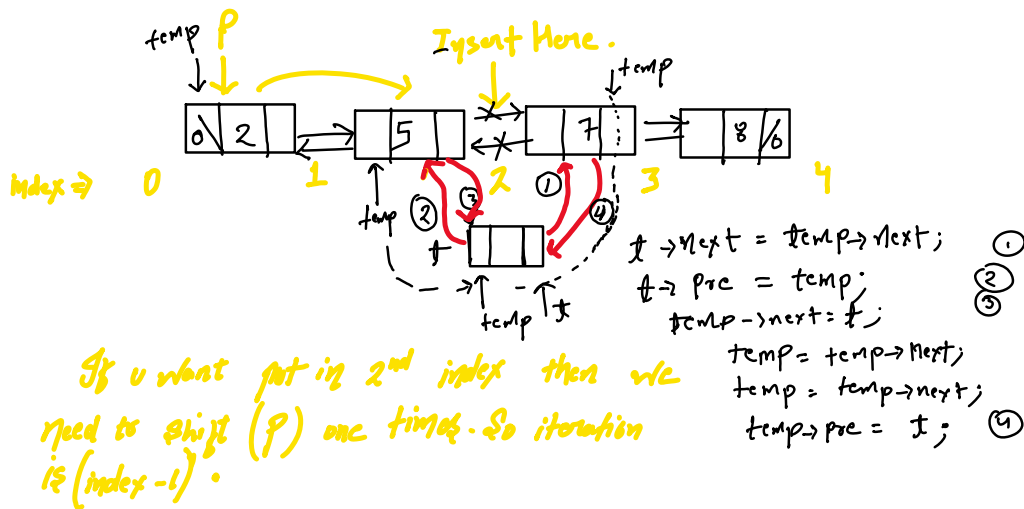 temp P
Insert Here.
temp
0 2 5 7 8 0
index => 0 1 2 3 4
① ② ③ ④
temp
t
temp t
t → next = temp → next; ①
t → pre = temp; ②
temp → next = t; ③
temp = temp → next;
temp = temp → next;
temp → pre = t; ④
If u want put in 2nd index then we
need to shift (P) one times. So iteration
is (index-1).